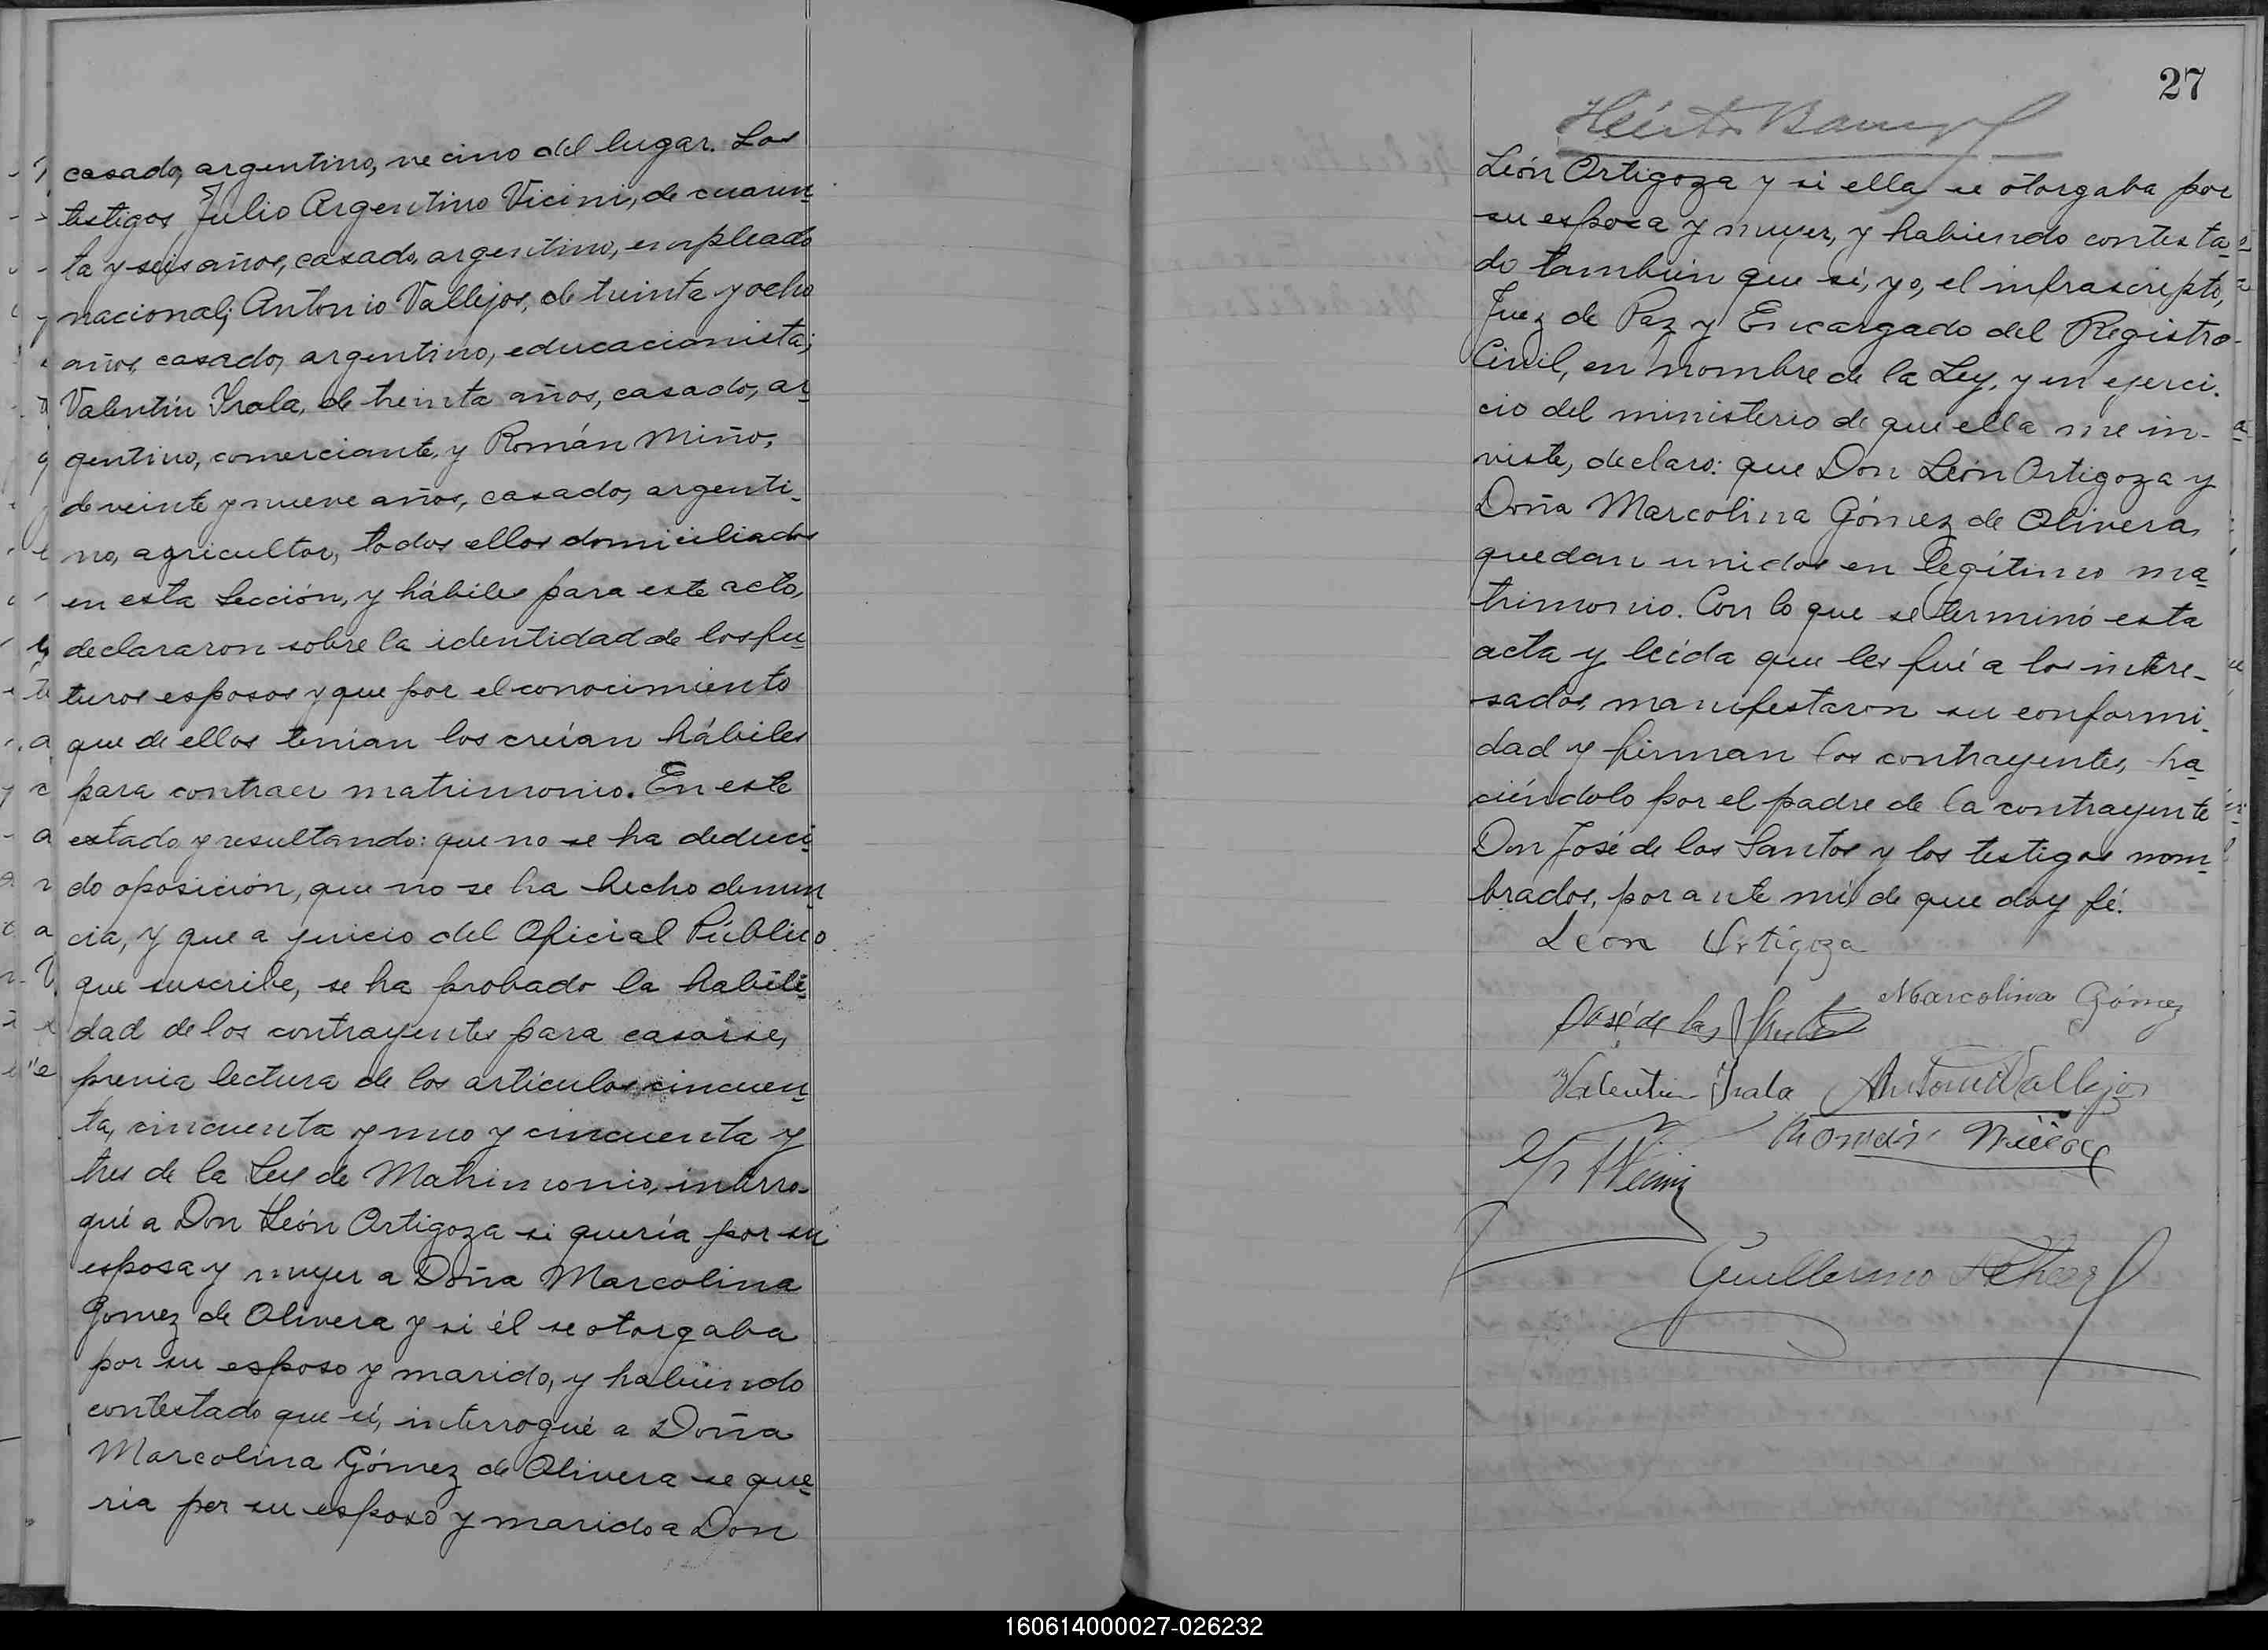 casado, argentino, vecino del lugar. Los
testigos Julio Argentino Vicini, de cuaren-
ta y seis años, casado, argentino, empleado
nacional; Antonio Vallejos, de treinta y ocho
años, casado, argentino, educacionista;
Valentín Irala, de treinta años, casado, ar-
gentino, comerciante, y Román Miño,
de veinte y nueve años, casado, argenti-
no, agricultor, todos ellos domiciliados
en esta Sección, y hábiles para este acto,
declararon sobre la identidad de los fu-
turos esposos y que por el conocimiento
que de ellos tenian los creían hábiles
para contraer matrimonio. En este
estado y resultando: que no se ha deduci-
do oposición, que no se ha hecho denun-
cia, y que a juicio del Oficial Público
que suscribe, se ha probado la habili-
dad de los contrayentes para casarse,
previa lectura de los artículos cincuen-
ta, cincuenta y uno y cincuenta y
tres de la Ley de Matrimonio, interro-
gué a Don León Ortigoza si quería por su
esposa y mujer a Doña Marcolina
Gomez de Olivera y si él se otorgaba
por su esposo y marido, y habiendo
contestado que sí, interrogué a Doña
Marcolina Gómez de Olivera se que-
ria por su esposo y marido a Don
27
Héctor
León Ortigoza y si ella se otorgaba por
su esposa y mujer, y habiendo contesta-
do también que sí, yo, el infrascripto,
Juez de Paz y Encargado del Registro
Civil, en nombre de la Ley, y en ejerci-
cio del ministerio de que ella me in-
viste, declaro: que Don León Ortigoza y
Doña Marcolina Gómez de Olivera,
quedan unidos en legítimo ma-
trimonio. Con lo que se terminó esta
acta y leída que les fué a los intere-
sados, manifestaron su conformi-
dad y firman los contrayentes, ha-
ciéndolo por el padre de la contrayente
Don José de los Santos y los testigos nom-
brados, por ante mí de que doy fé.
Leon Ortigoza
Marcolina Gómez
José de los Santos
Valentin Irala Antonio Vallejos
Román Miño
Guillermo
160614000027-026232